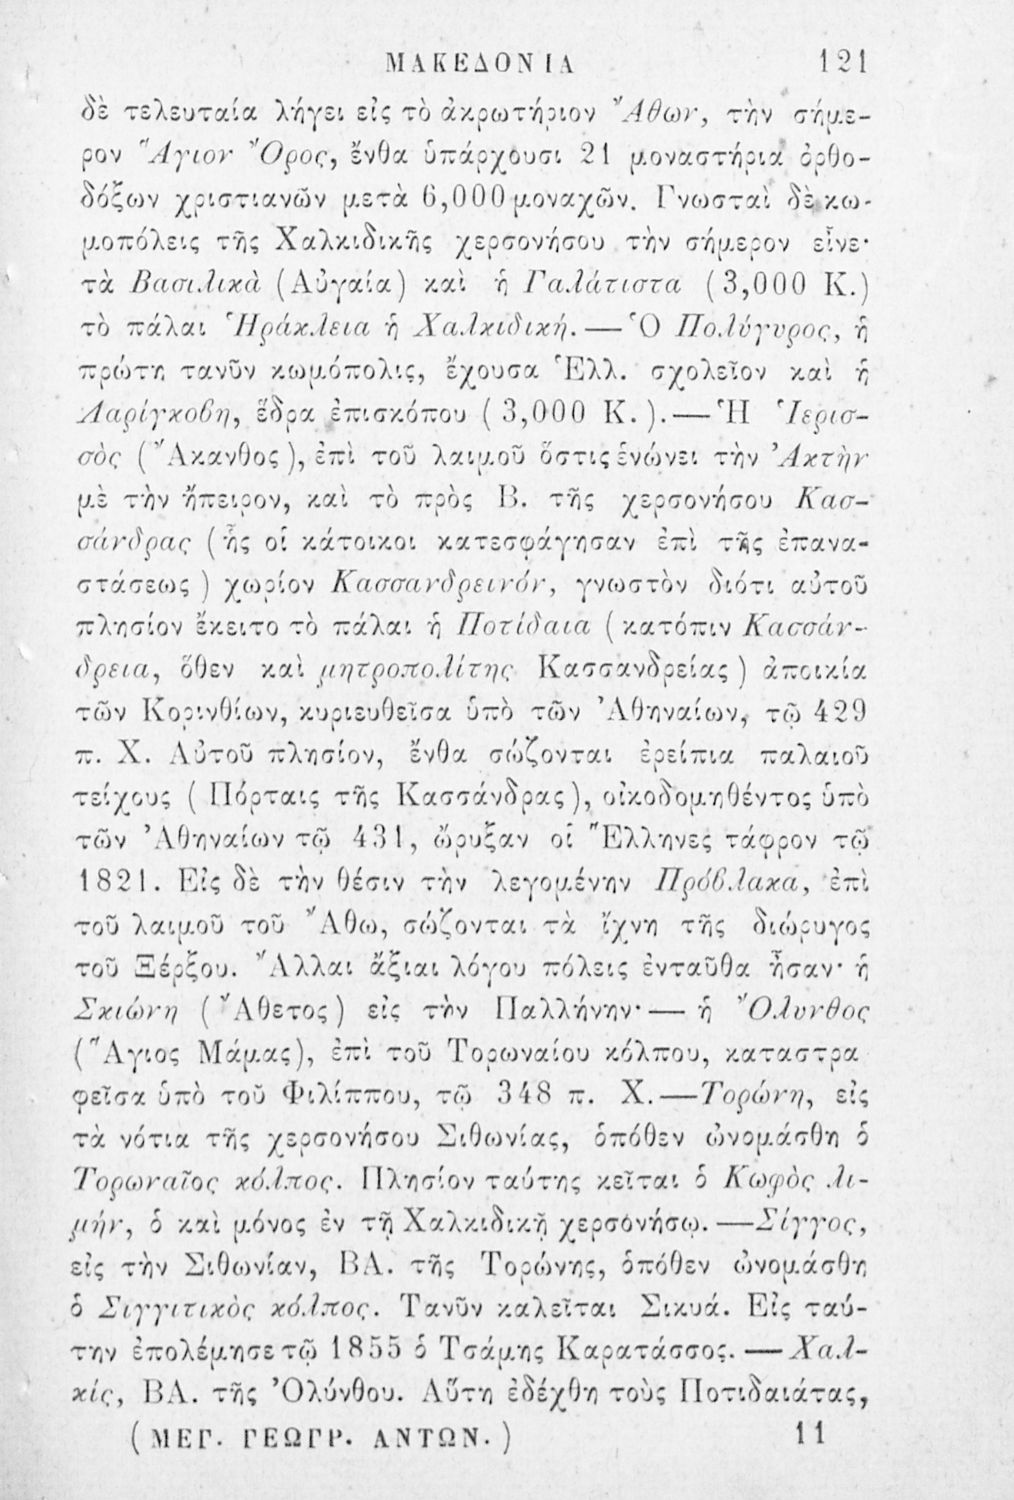 ΜΑΚΕΔΟΝΙΑ 121
δὲ τελευταία λήγει εἰς τὸ ἀκρωτήριον Ἄθων, τὴν σήμε-
ρον Ἅγιον Ὄρος, ἔνθα ὑπάρχουσι 21 μοναστήρια ὀρθο-
δόξων χριστιανῶν μετὰ 6,000 μοναχῶν. Γνωσταὶ δὲ κω-
μοπόλεις τῆς Χαλκιδικῆς χερσονήσου τὴν σήμερον εἶνε·
τὰ Βασιλικὰ (Αὐγαία) καὶ ἡ Γαλάτιστα (3,000 Κ.)
τὸ πάλαι Ἡράκλεια ἢ Χαλκιδική. — Ὁ Πολύγυρος, ἡ
πρώτη τανῦν κωμόπολις, ἔχουσα Ἑλλ. σχολεῖον καὶ ἡ
Λαρίγκοβη, ἕδρα ἐπισκόπου (3,000 Κ.). — Ἡ Ἱερισ-
σὸς (Ἄκανθος), ἐπὶ τοῦ λαιμοῦ ὅστις ἑνώνει τὴν Ἀκτὴν
μὲ τὴν ἤπειρον, καὶ τὸ πρὸς Β. τῆς χερσονήσου Κασ-
σάνδρας (ἧς οἱ κάτοικοι κατεσφάγησαν ἐπὶ τῆς ἐπανα-
στάσεως) χωρίον Κασσανδρεινόν, γνωστὸν διότι αὐτοῦ
πλησίον ἔκειτο τὸ πάλαι ἡ Ποτίδαια (κατόπιν Κασσάν-
δρεια, ὅθεν καὶ μητροπολίτης Κασσανδρείας) ἀποικία
τῶν Κορινθίων, κυριευθεῖσα ὑπὸ τῶν Ἀθηναίων, τῷ 429
π. Χ. Αὐτοῦ πλησίον, ἔνθα σώζονται ἐρείπια παλαιοῦ
τείχους (Πόρταις τῆς Κασσάνδρας), οἰκοδομηθέντος ὑπὸ
τῶν Ἀθηναίων τῷ 431, ὤρυξαν οἱ Ἕλληνες τάφρον τῷ
1821. Εἰς δὲ τὴν θέσιν τὴν λεγομένην Πρόβλακα, ἐπὶ
τοῦ λαιμοῦ τοῦ Ἄθω, σώζονται τὰ ἴχνη τῆς διώρυγος
τοῦ Ξέρξου. Ἄλλαι ἄξιαι λόγου πόλεις ἐνταῦθα ἦσαν· ἡ
Σκιώνη (Ἄθετος) εἰς τὴν Παλλήνην· — ἡ Ὄλυνθος
(Ἅγιος Μάμας), ἐπὶ τοῦ Τορωναίου κόλπου, καταστρα
φεῖσα ὑπὸ τοῦ Φιλίππου, τῷ 348 π. Χ. — Τορώνη, εἰς
τὰ νότια τῆς χερσονήσου Σιθωνίας, ὁπόθεν ὠνομάσθη ὁ
Τορωναῖος κόλπος. Πλησίον ταύτης κεῖται ὁ Κωφὸς λι-
μήν, ὁ καὶ μόνος ἐν τῇ Χαλκιδικῇ χερσονήσῳ. — Σίγγος,
εἰς τὴν Σιθωνίαν, ΒΑ. τῆς Τορώνης, ὁπόθεν ὠνομάσθη
ὁ Σιγγιτικὸς κόλπος. Τανῦν καλεῖται Σικυά. Εἰς ταύ-
την ἐπολέμησε τῷ 1855 ὁ Τσάμης Καρατάσσος. — Χαλ-
κίς, ΒΑ. τῆς Ὀλύνθου. Αὕτη ἐδέχθη τοὺς Ποτιδαιάτας,
(ΜΕΓ. ΓΕΩΓΡ. ΑΝΤΩΝ.) 11